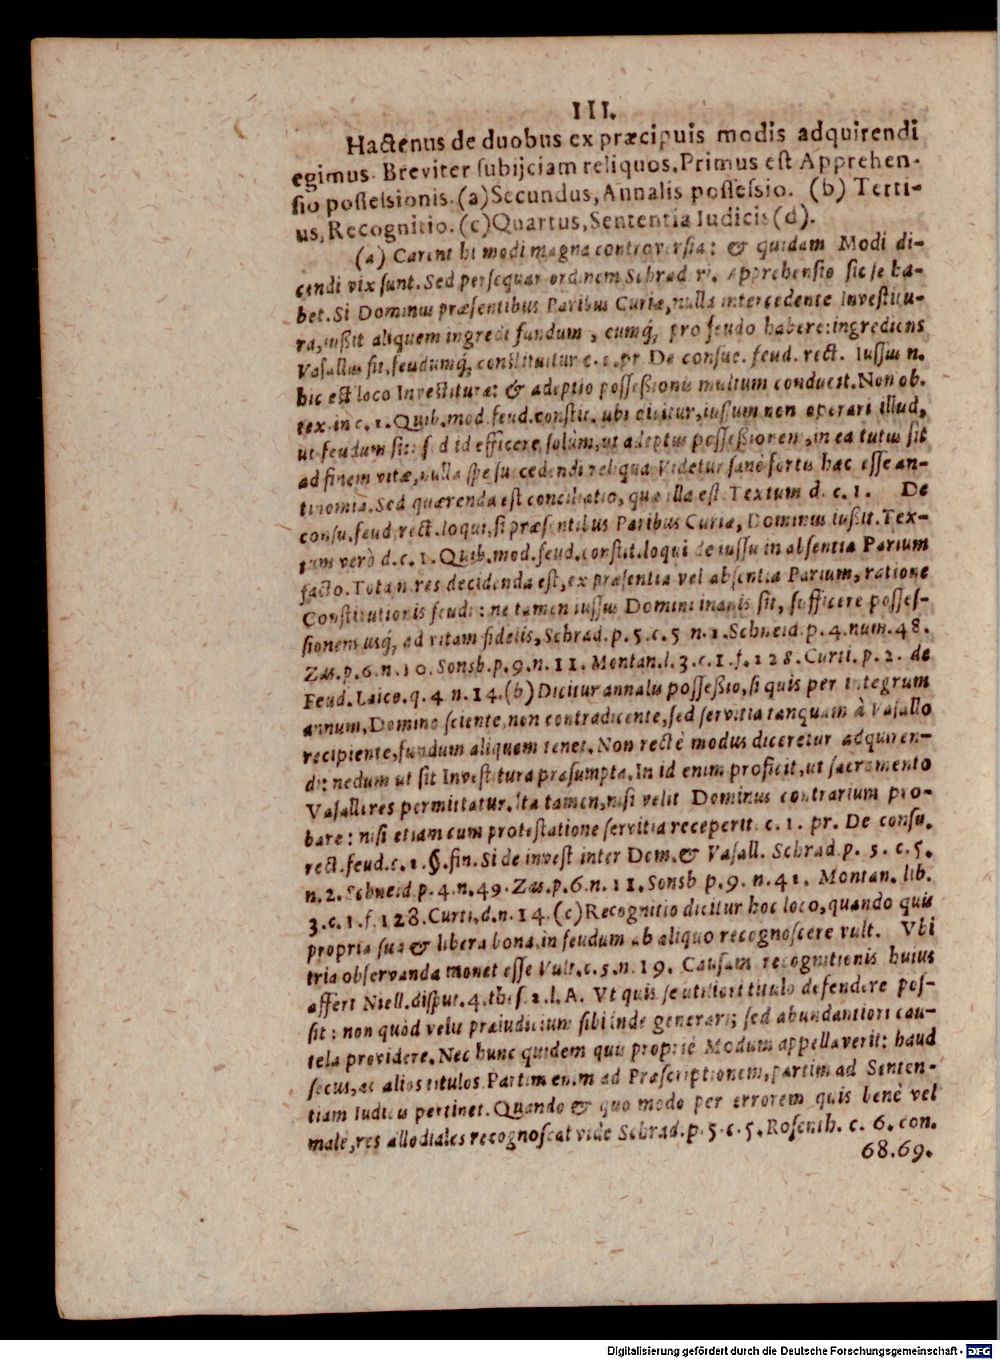 III.
Hactenus de duobus ex præcipuis modis adquirendi
egimus. Breviter ſubijciam reliquos. Primus eſt Apprehen-
ſio poſſeſsionis. (a) Secundus, Annalis poſſeſsio. (b) Terti-
us, Recognitio. (c) Quartus, Sententia Iudicis (d).
(a) Carent hi modi magna controverſia: & quidam Modi di-
cendi vix ſunt. Sed perſequar ordinem Schraderi. Apprehenſio ſic ſe ha-
bet. Si Dominus præſentibus Paribus Curiæ, nulla intercedente Inveſtitu-
ra, iußit aliquem ingredi fundum, eumq́, pro feudo habere: ingrediens
Vaſallus fit, feudumq́, conſtituitur c. 1. pr De conſue. feud. rect. Iuſſus n.
hic eſt loco Inveſtituræ: & adeptio poſſeßionis multum conducit. Non ob.
tex. in c. 1. Quib. mod. feud. conſtit. ubi dicitur, iuſſum non operari illud,
ut feudum ſit: ſed id efficere ſolum, ut adeptus poſſeßionem, in ea tutus ſit
ad finem vitæ, nulla ſpe ſuccedendi reliqua. Videtur ſanè fortu hac eſſe an-
tinomia. Sed quærenda eſt conciliatio, quæ illa eſt. Textum d. c. 1. De
conſu. feud. rect. loqui, ſi præſentibus Paribus Curiæ, Dominus iußit. Tex-
tum verò d. c. 1. Quib. mod. feud. conſtit. loqui de iuſſu in abſentia Parium
facto. Totam res decidenda eſt, ex præſentia vel abſentia Parium, ratione
Conſtitutionis feudi: ne tamen iuſſus Domini inanis ſit, ſufficere poſſeſ-
ſionem usq́, ad vitam fidelis, Schrad. p. 5. c. 5 n. 1. Schneid. p. 4. num. 48.
Zas. p. 6. n. 10. Sonsb. p. 9. n. 11. Montan. l. 3. c. 1. f. 128. Curti. p. 2. de
Feud. Laico. q. 4 n. 14. (b) Dicitur annalis poſſeßio, ſi quis per integrum
annum, Domino ſciente, non contradicente, ſed ſervitia tanquam à Vaſallo
recipiente, fundum aliquem tenet. Non rectè modus diceretur adquiren-
di: nedum ut ſit Inveſtitura præſumpta. In id enim proficit, ut ſacramento
Vaſalli res permittatur. Ita tamen, niſi velit Dominus contrarium pro-
bare: niſi etiam cum proteſtatione ſervitia receperit. c. 1. pr. De conſu.
rect. feud. c. 1. §. fin. Si de inveſt inter Dom. & Vaſall. Schrad. p. 5. c. 5.
n. 2. Schneid. p. 4. n. 49. Zas. p. 6. n. 11. Sonsb p. 9. n. 41. Montan. lib.
3. c. 1. f. 128. Curti, d. n. 14. (c) Recognitio dicitur hoc loco, quando quis
propria ſua & libera bona, in feudum ab aliquo recognoſcere vult. Vbi
tria obſervanda monet eſſe Vult. c. 5. n. 19. Cauſam recognitionis huius
affert Niell. diſput. 4. theſ. 2. l. A. Vt quis ſe utiliori titulo defendere poſ-
ſit: non quòd velit præiudicium ſibi inde generari; ſed abundantiori cau-
tela providere. Nec hunc quidem quis propriè Modum appellaverit: haud
ſecus, ac alios titulos. Partim enim ad Præſcriptionem, partim ad Senten-
tiam Iudicis pertinet. Quando & quo modo per errorem quis benè vel
malè, res allodiales recognoſcat vide Schrad. p. 5. c. 5. Roſenth. c. 6. con.
68. 69.
Digitalisierung gefördert durch die Deutsche Forschungsgemeinschaft - DFG